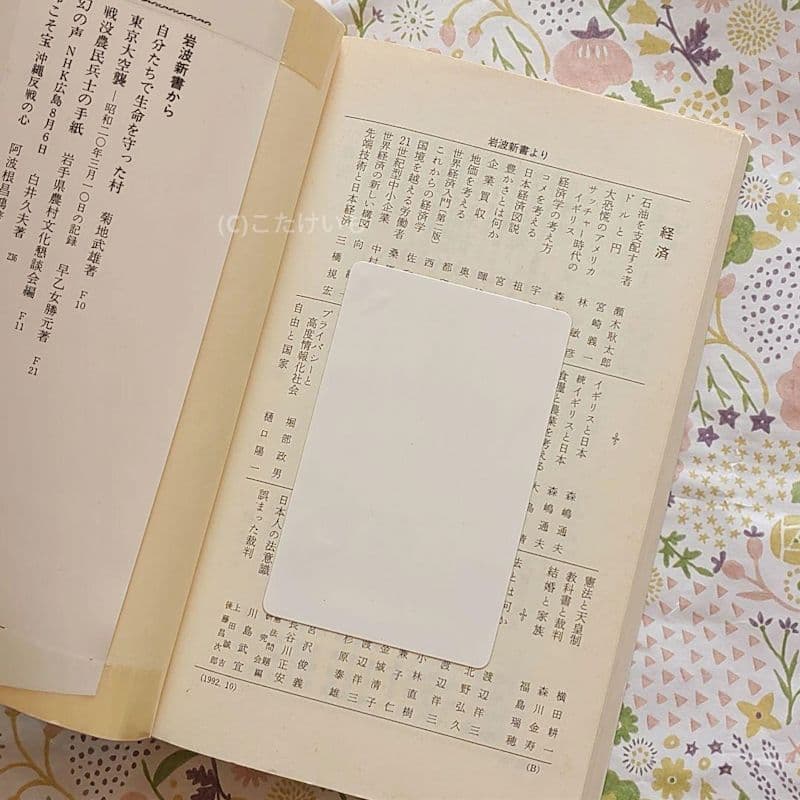 岩波新書から
自分たちで生命を守った村 菊地武雄著 F10
東京大空襲―昭和二〇年三月一〇日の記録 早乙女勝元著 F21
戦没農民兵士の手紙 岩手県農村文化懇談会編 F11
幻の声 NHK広島8月6日 白井久夫著 236
こそ宝 沖縄反戦の心 阿波根昌鴻
岩波新書より
経済
石油を支配する者 瀬木耿太郎
ドルと円 宮崎義一
大恐慌のアメリカ 林 敏彦
サッチャー時代の
イギリス 森
経済学の考え方 宇
コメを考える 祖
日本経済図説 宮
豊かさとは何か 暉
企業買収 奥
地価を考える 都
世界経済入門〔第二版〕 西
これからの経済学 佐
国境を越える労働者 桑
21世紀型中小企業 中村
世界経済の新しい構図 向
先端技術と日本経済 三橋規宏
イギリスと日本 森嶋通夫
続イギリスと日本 森嶋通夫
食糧と農業を考える 大島 清
プライバシーと
高度情報化社会 堀部政男
自由と国家 樋口陽一
憲法と天皇制 横田耕一
教科書と裁判 森川金寿
結婚と家族 福島瑞穂
法とは何か 渡辺洋三
北野弘久
渡辺洋三
小林直樹
兼子 仁
金城清子
渡辺洋三
杉原泰雄
宮沢俊義
長谷川正安
憲法問題
研究会編
日本人の法意識 川島武宜
誤まった裁判 上田誠吉
後藤昌次郎
(1992.10)
(B)
(C)こたけい